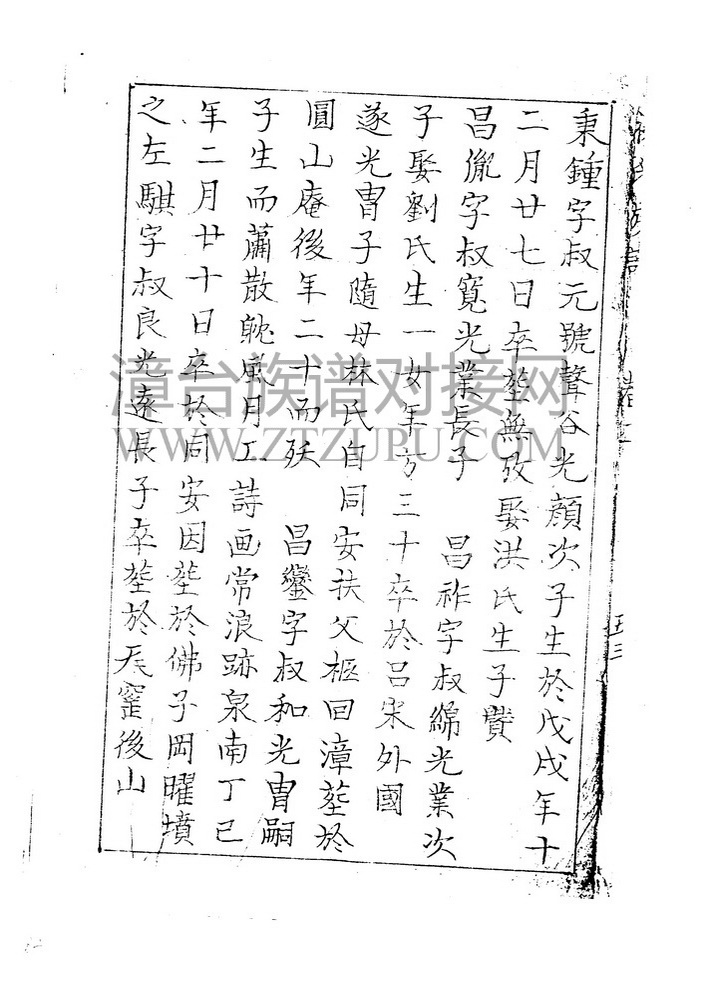 秉鍾字叔元號聲谷光顏次子生於戊戌年十
二月廿七日卒塟無攷娶洪氏生子賛
昌胤字叔寬光業長子 昌祚字叔綿光業次
子娶劉氏生一女年方三十卒於吕宋外國
遂光胄子隨母林氏自同安扶父柩回漳塟於
圓山庵後年二十而殀 昌鑾字叔和光胄嗣
子生而蕭散躭風月工詩画常浪跡泉南丁已
年二月廿十日卒於同安因塟於佛子岡曜墳
之左騏字叔良光遠長子卒塟於天窰後山
五三
漳台族谱对接网
WWW.ZTZUPU.COM